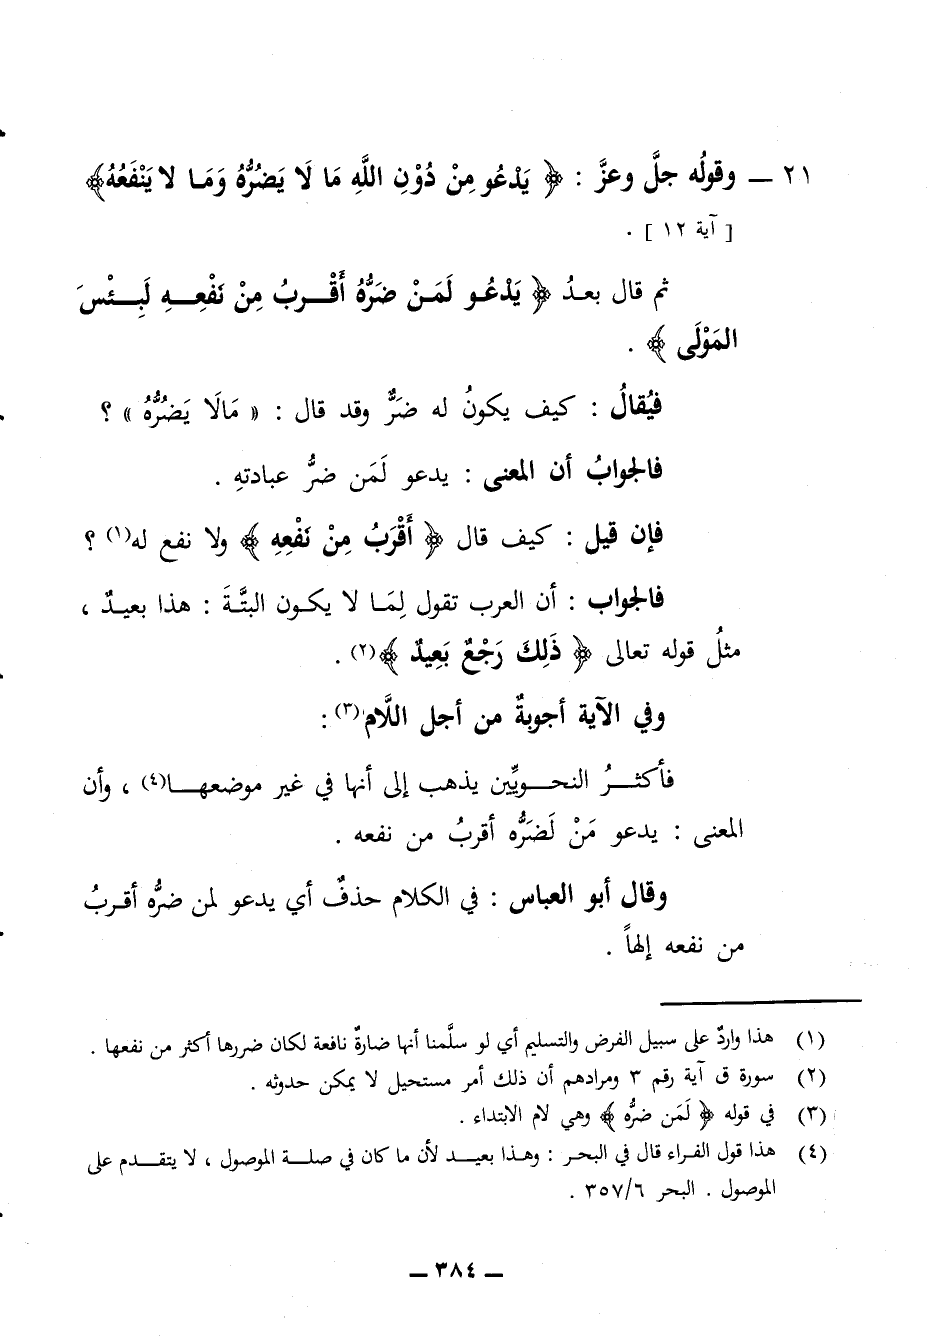 ٢١ ــ وقولُه جلَّ وعزَّ : ﴿ يَدْعُو مِنْ دُوْنِ اللَّهِ مَا لَا يَضُرُّهُ وَمَا لا يَنْفَعُهُ﴾
[ آية ١٢ ] .
ثم قال بعدُ ﴿ يَدْعُو لَمَنْ ضَرُّهُ أَقْربُ مِنْ نَفْعِهِ لَبِئْسَ
المَوْلَى ﴾ .
فيُقالُ : كيف يكونُ له ضَرٌّ وقد قال : « مَالَا يَضُرُّهُ » ؟
فالجوابُ أن المعنى : يدعو لَمَن ضرُّ عبادتهِ .
فإن قيل : كيف قال ﴿ أَقْرَبُ مِنْ نَفْعِهِ ﴾ ولا نفع له(١) ؟
فالجواب : أن العرب تقول لِمَا لا يكون البتَّةَ : هذا بعيدٌ ،
مثلُ قوله تعالى ﴿ ذَلِكَ رَجْعٌ بَعِيدٌ ﴾(٢) .
وفي الآية أجوبةٌ من أجل اللَّام(٣) :
فأكثرُ النحويِّين يذهب إلى أنها في غير موضعها(٤) ، وأن
المعنى : يدعو مَنْ لَضَرُّه أقربُ من نفعه .
وقال أبو العباس : في الكلام حذفٌ أي يدعو لمن ضرُّه أقربُ
من نفعه إلهاً .
(١) هذا واردٌ على سبيل الفرض والتسليم أي لو سلَّمنا أنها ضارةٌ نافعة لكان ضررها أكثر من نفعها .
(٢) سورة ق آية رقم ٣ ومرادهم أن ذلك أمر مستحيل لا يمكن حدوثه .
(٣) في قوله ﴿ لَمَن ضرُّه ﴾ وهي لام الابتداء .
(٤) هذا قول الفراء قال في البحر : وهذا بعيد لأن ما كان في صلة الموصول ، لا يتقدم على
الموصول . البحر ٣٥٧/٦ .
ــ ٣٨٤ ــ